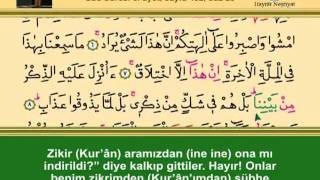 Hayrât Neşriyat
امْشُوا وَاصْبِرُوا عَلٰٓى اٰلِهَتِكُمْ اِنَّ هٰذَا لَشَيْءٌ يُرَادُ ﴿٦﴾ مَا سَمِعْنَا بِهٰذَا
فِي الْمِلَّةِ الْاٰخِرَةِ اِنْ هٰذَٓا اِلَّا اخْتِلَاقٌ ﴿٧﴾ ءَاُنْزِلَ عَلَيْهِ الذِّكْرُ
مِنْ بَيْنِنَا بَلْ هُمْ فِي شَكٍّ مِنْ ذِكْرِي بَلْ لَمَّا يَذُوقُوا عَذَابِ ﴿٨﴾
Zikir (Kur’ân) aramızdan (ine ine) ona mı
indirildi?” diye kalkıp gittiler. Hayır! Onlar
benim zikrimden (Kur’ânımdan) şübhe